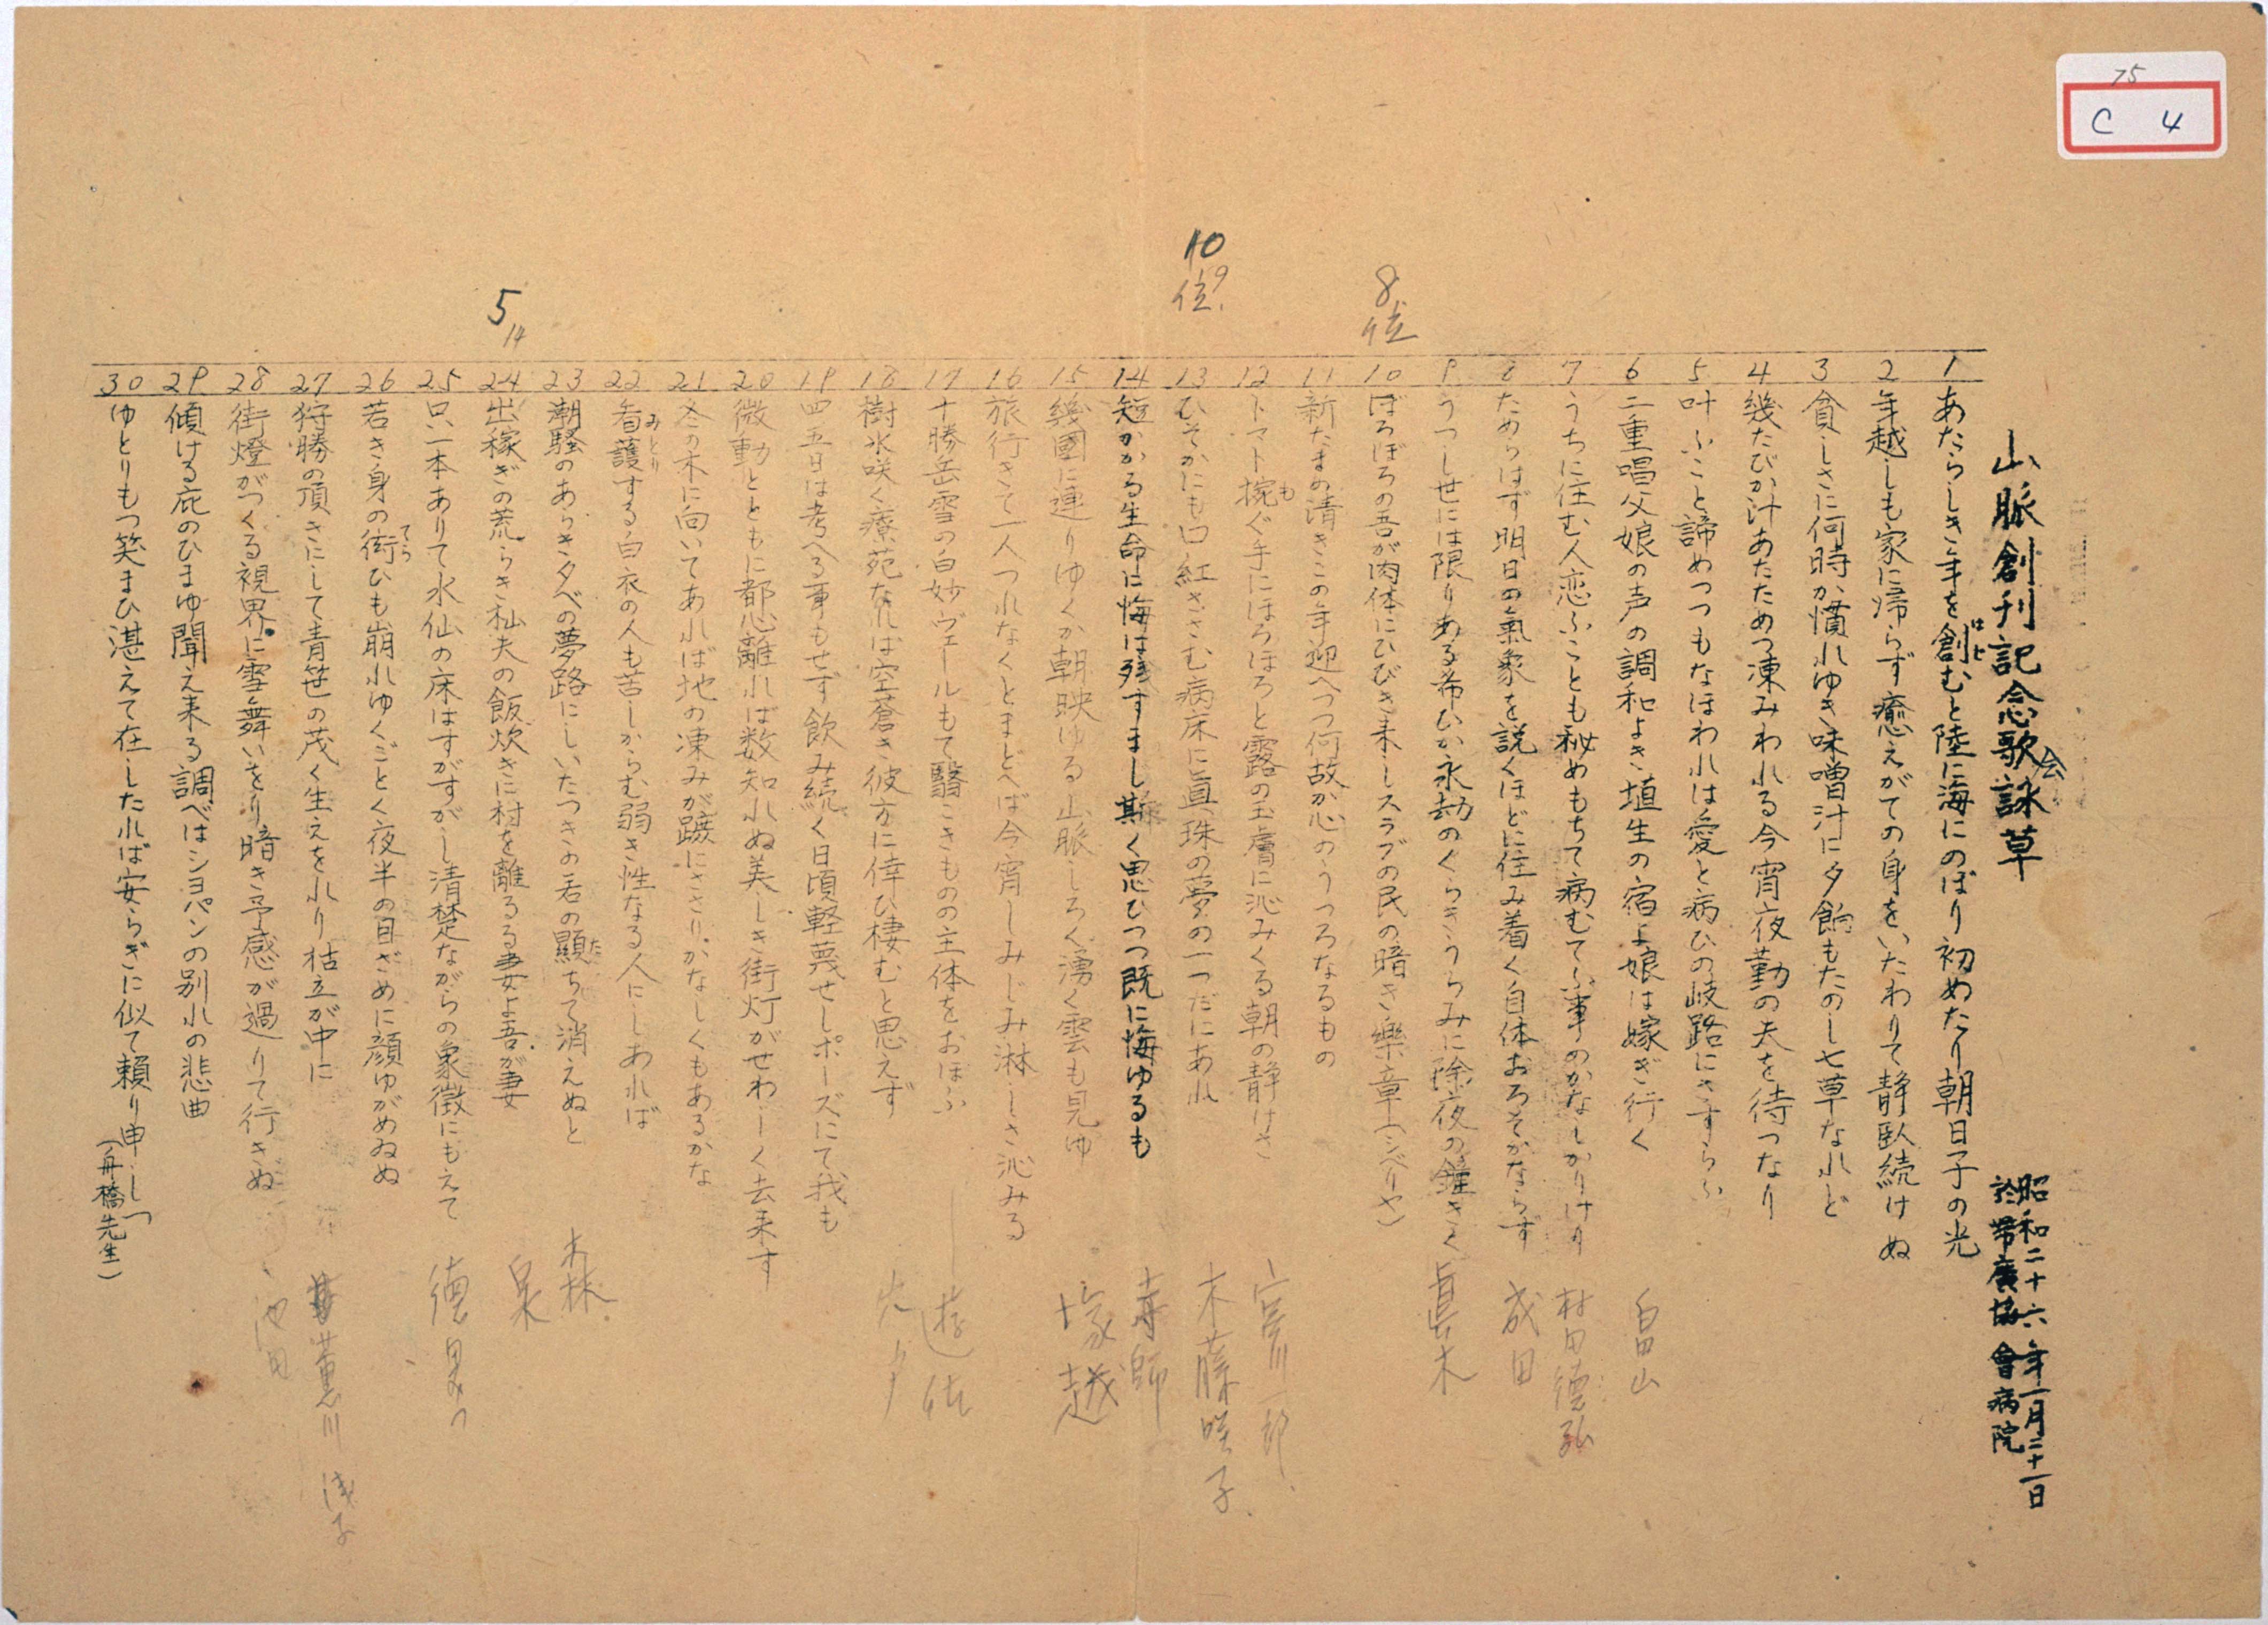 75
C 4
山脈創刊記念歌会詠草
昭和二十六年一月二十一日
於帯廣協會病院
1 あたらしき年を創むと陸に海にのぼり初めたり朝日子の光
2 年越しも家に帰らず癒えがての身をいたわりて静臥続けぬ
3 貧しさに何時か慣れゆき味噌汁に夕餉もたのし七草なれど
4 幾たびか汁あたためつ凍みわれる今宵夜勤の夫を待つなり
5 叶ふこと諦めつつもなほわれは愛と病ひの岐路にさすらふ
6 二重唱父娘の声の調和よき埴生の宿よ娘は嫁ぎ行く 畠山
7 うちに住む人恋ふことも秘めもちて病むてふ事のかなしかりけり 村田德弘
8 ためらはず明日の氣象を説くほどに住み着く自体おろそかならず 成田
9 うつし世には限りある希ひか永劫のくらきうらみに除夜の鐘きく 眞木
8位
10 ぼろぼろの吾が肉体にひびき来しスラブの民の暗き樂章(シベリヤ)
11 新たまの清きこの年迎へつつ何故か心のうつろなるもの
12 トマト捥ぐ手にほろほろと露の玉膚に沁みくる朝の静けさ 宮川一郎
10
9位
13 ひそかにも口紅さざむ病床に眞珠の夢の一つだにあれ 木藤咲子
14 短かかる生命に悔は残すまし斯く思ひつつ既に悔ゆるも 寿師
15 幾國に連りゆくか朝映ゆる山脈しろく湧く雲も見ゆ 塚越
16 旅行きて一人つれなくとまどへば今宵しみじみ淋しさ沁みる
17 十勝岳雪の白妙ヴェールもて翳こきものの主体をおほふ 遊佐
18 樹氷咲く療苑なれは空蒼き彼方に倖ひ棲むと思えず
19 四五日は考へる事もせず飲み続く日頃軽蔑せしポーズにて我も
20 微動とともに都心離れば数知れぬ美しき街灯がせわしく去来す
21 冬の木に向いてあれば地の凍みが蹠にささりかなしくもあるかな
22 看護する白衣の人も苦しからむ弱き性なる人にしあれば
みとり
23 潮騒のあらき夕べの夢路にしいたつきの君の顕ちて消えぬと 森
5
14
24 出稼ぎの荒らき杣夫の飯炊きに村を離るる妻よ吾が妻 泉
25 只一本ありて水仙の床はすがすがし清楚ながらの象徴にもえて
26 若き身の衒ひも崩れゆくごとく夜半の目ざめに顔ゆがめゐぬ
27 狩勝の頂きにして青笹の茂く生えをれり枯立が中に
28 街燈がつくる視界に雪舞いをり暗き予感が過りて行きぬ 池田
29 傾ける庇のひまゆ聞え来る調べはショパンの別れの悲曲
30 ゆとりもつ笑まひ湛えて在したれば安らぎに似て頼り申しつ
(舟橋先生)